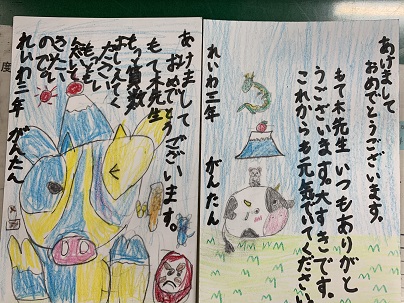 あけまして
おめでとうございます。
もて木先生
もっと算数
おしえてく
ださい
もっと
れいわ三年 がんたん
あけまして
おめでとうございます。
もて木先生 いつもありがと
うございます。大すきです。
これからも元気でいてください
れいわ三年 がんたん